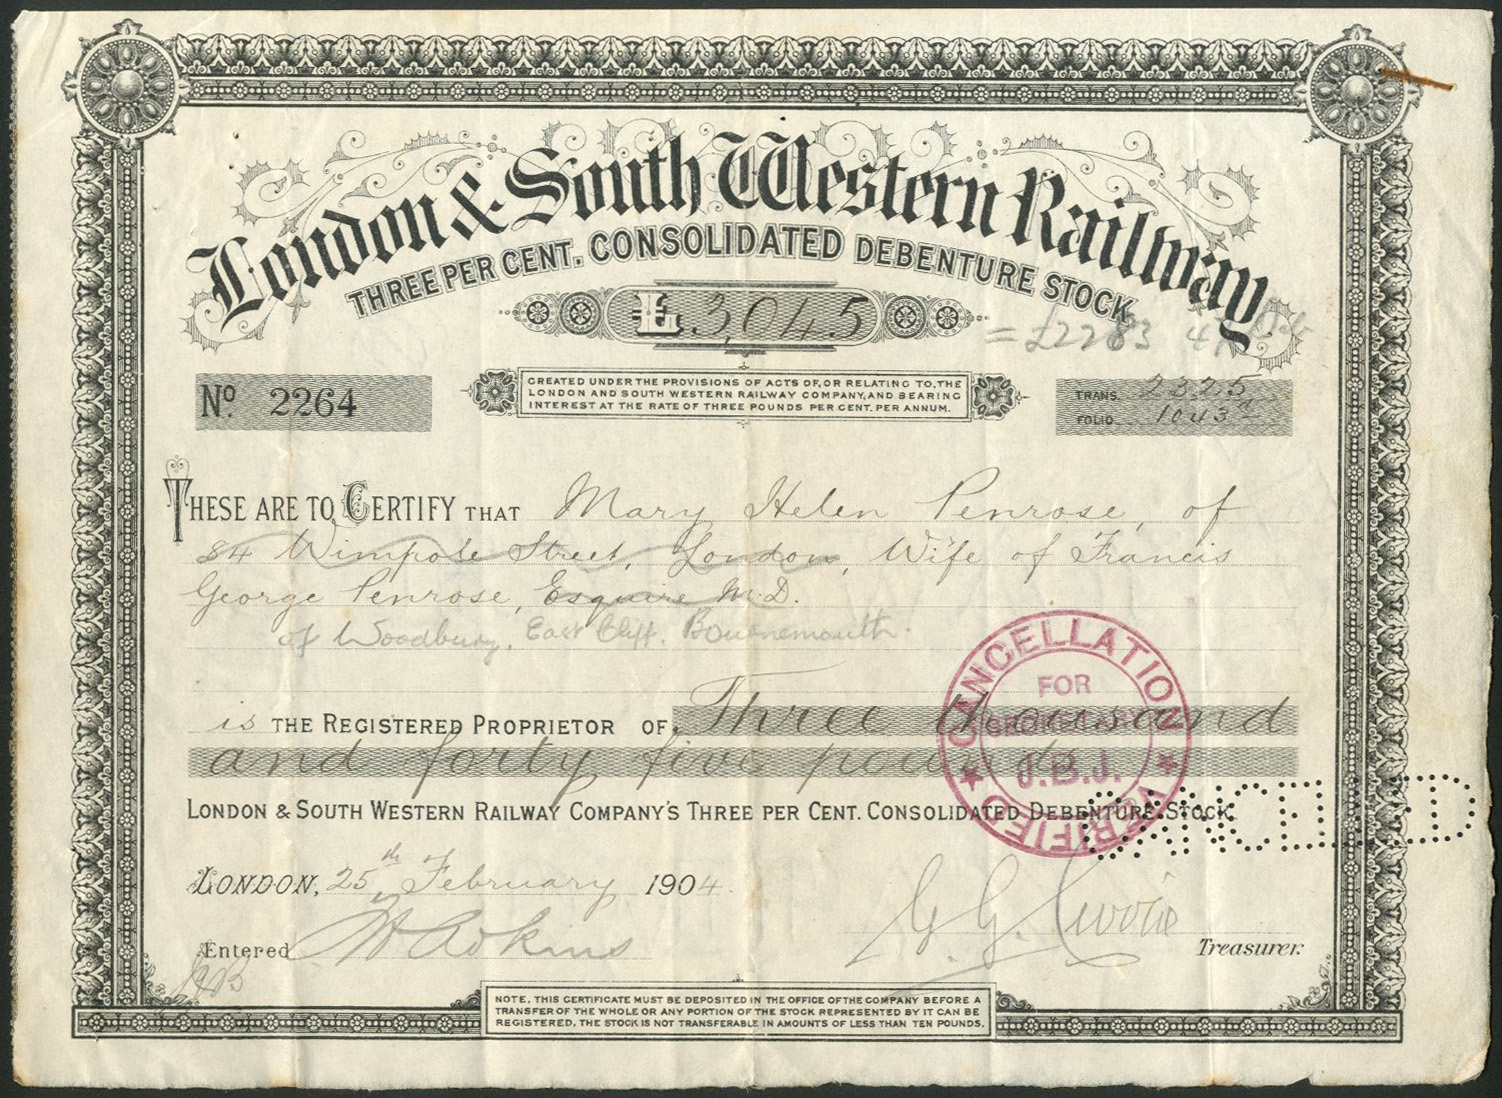 London & South Western Railway
THREE PER CENT. CONSOLIDATED DEBENTURE STOCK
£ 3,045
= £2283
No. 2264
CREATED UNDER THE PROVISIONS OF ACTS OF, OR RELATING TO, THE
LONDON AND SOUTH WESTERN RAILWAY COMPANY, AND BEARING
INTEREST AT THE RATE OF THREE POUNDS PER CENT. PER ANNUM.
TRANS. 2325
FOLIO 1043
THESE ARE TO CERTIFY THAT Mary Helen Penrose, of
84 Wimpole Street, London, Wife of Francis
George Penrose, Esquire M.D.
of Woodbury, East Cliff, Bournemouth.
is THE REGISTERED PROPRIETOR OF Three thousand
and forty five pounds
LONDON & SOUTH WESTERN RAILWAY COMPANY'S THREE PER CENT. CONSOLIDATED DEBENTURE STOCK.
CANCELLATION
FOR
SECRETARY
J.B.J.
VERIFIED
CANCELLED
LONDON, 25th February 1904.
Entered Adkins
Treasurer.
NOTE, THIS CERTIFICATE MUST BE DEPOSITED IN THE OFFICE OF THE COMPANY BEFORE A
TRANSFER OF THE WHOLE OR ANY PORTION OF THE STOCK REPRESENTED BY IT CAN BE
REGISTERED, THE STOCK IS NOT TRANSFERABLE IN AMOUNTS OF LESS THAN TEN POUNDS.